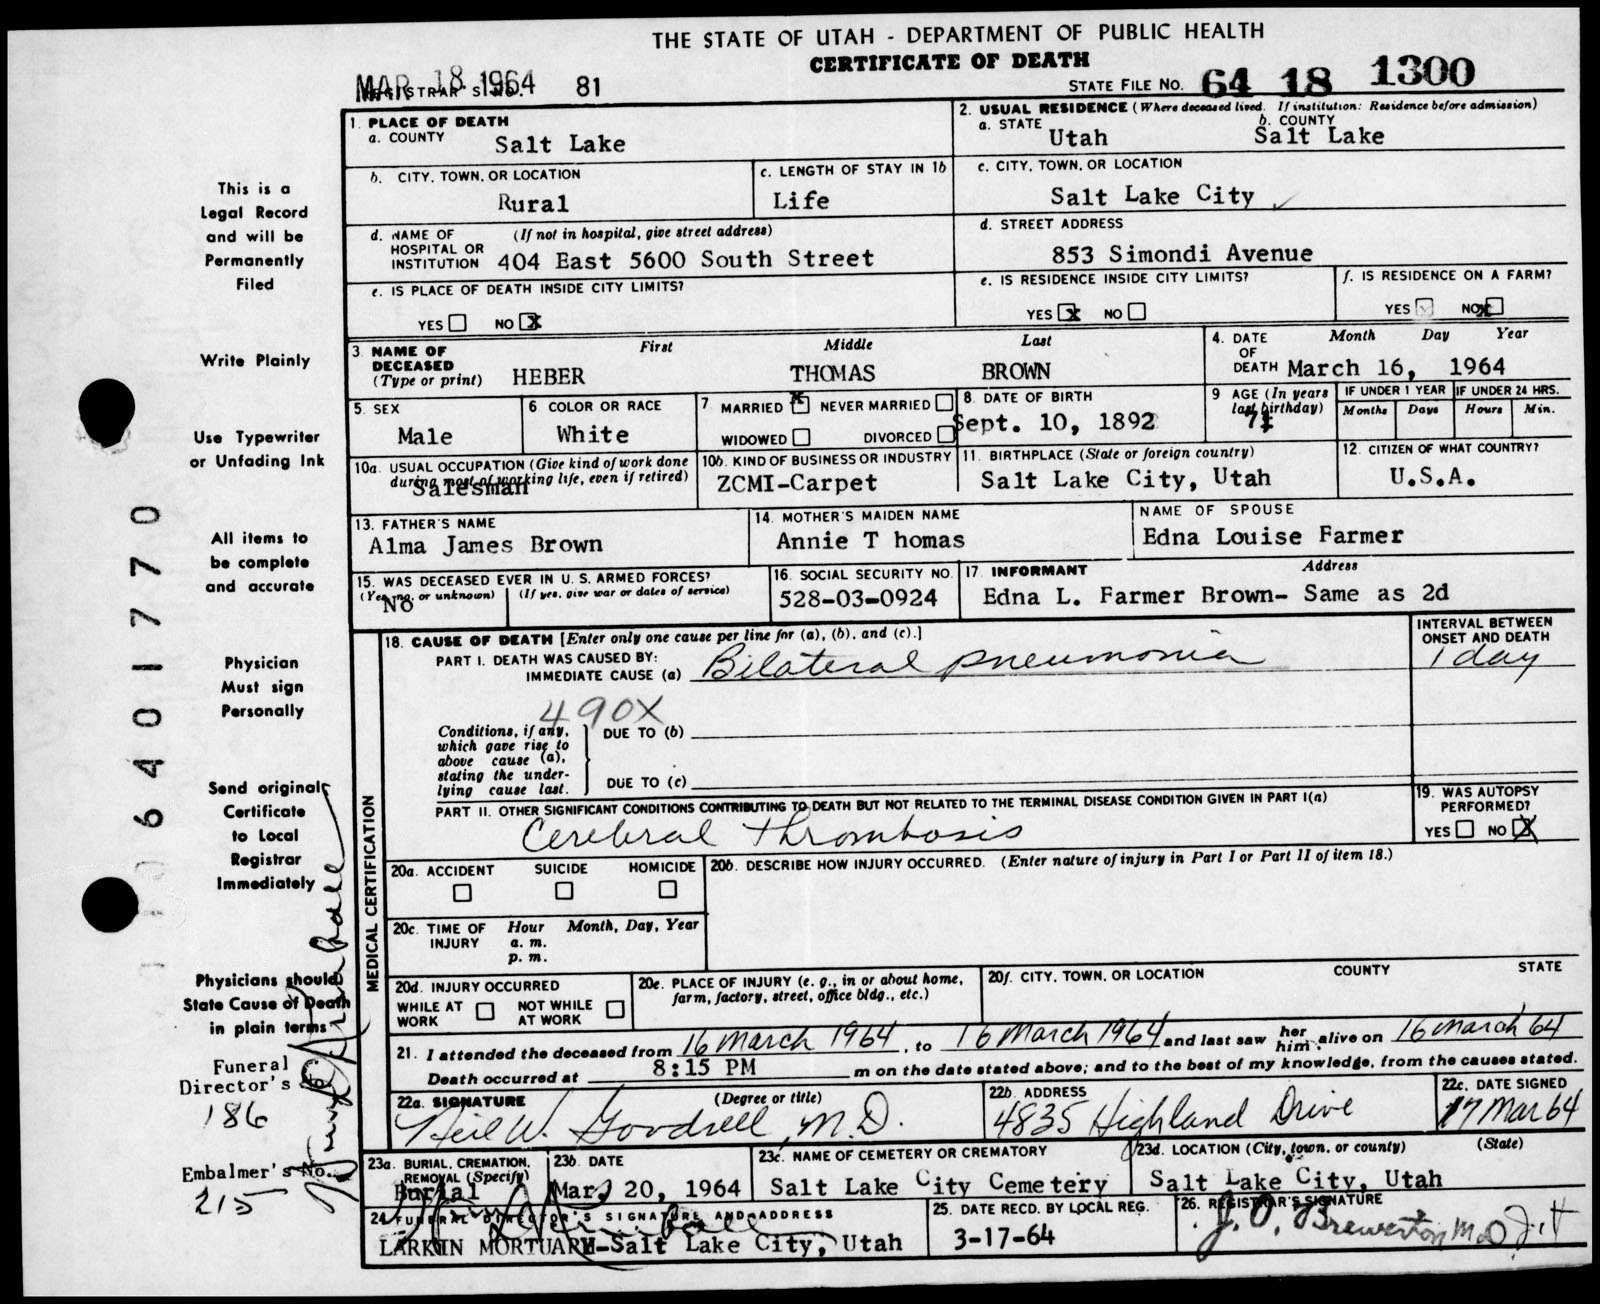 THE STATE OF UTAH - DEPARTMENT OF PUBLIC HEALTH
CERTIFICATE OF DEATH
MAR 18 1964
REGISTRAR'S NO. 81
STATE FILE NO. 64 18 1300
1. PLACE OF DEATH
a. COUNTY Salt Lake
2. USUAL RESIDENCE (Where deceased lived. If institution: Residence before admission)
a. STATE Utah b. COUNTY Salt Lake
b. CITY, TOWN, OR LOCATION Rural
c. LENGTH OF STAY IN 1b Life
c. CITY, TOWN, OR LOCATION
Salt Lake City
d. NAME OF HOSPITAL OR INSTITUTION (If not in hospital, give street address)
404 East 5600 South Street
d. STREET ADDRESS
853 Simondi Avenue
e. IS PLACE OF DEATH INSIDE CITY LIMITS?
YES NO X
e. IS RESIDENCE INSIDE CITY LIMITS?
YES X NO
f. IS RESIDENCE ON A FARM?
YES NO X
3. NAME OF DECEASED (Type or print)
First Middle Last
HEBER THOMAS BROWN
4. DATE OF DEATH Month Day Year
March 16, 1964
5. SEX
Male
6 COLOR OR RACE
White
7 MARRIED X NEVER MARRIED
WIDOWED DIVORCED
8. DATE OF BIRTH
Sept. 10, 1892
9 AGE (In years last birthday)
71
IF UNDER 1 YEAR IF UNDER 24 HRS.
Months Days Hours Min.
10a. USUAL OCCUPATION (Give kind of work done during most of working life, even if retired)
Salesman
10b. KIND OF BUSINESS OR INDUSTRY
ZCMI-Carpet
11. BIRTHPLACE (State or foreign country)
Salt Lake City, Utah
12. CITIZEN OF WHAT COUNTRY?
U.S.A.
13. FATHER'S NAME
Alma James Brown
14. MOTHER'S MAIDEN NAME
Annie T homas
NAME OF SPOUSE
Edna Louise Farmer
15. WAS DECEASED EVER IN U.S. ARMED FORCES?
(Yes, no, or unknown) (If yes, give war or dates of service)
No
16. SOCIAL SECURITY NO.
528-03-0924
17. INFORMANT Address
Edna L. Farmer Brown- Same as 2d
MEDICAL CERTIFICATION
18. CAUSE OF DEATH [Enter only one cause per line for (a), (b), and (c).]
INTERVAL BETWEEN ONSET AND DEATH
PART I. DEATH WAS CAUSED BY:
IMMEDIATE CAUSE (a) Bilateral pneumonia 1 day
490X
Conditions, if any, which gave rise to above cause (a), stating the underlying cause last.
DUE TO (b)
DUE TO (c)
PART II. OTHER SIGNIFICANT CONDITIONS CONTRIBUTING TO DEATH BUT NOT RELATED TO THE TERMINAL DISEASE CONDITION GIVEN IN PART I(a)
Cerebral thrombosis
19. WAS AUTOPSY PERFORMED?
YES NO X
20a. ACCIDENT SUICIDE HOMICIDE
20b. DESCRIBE HOW INJURY OCCURRED. (Enter nature of injury in Part I or Part II of item 18.)
20c. TIME OF INJURY Hour Month, Day, Year
a. m.
p. m.
20d. INJURY OCCURRED
WHILE AT WORK NOT WHILE AT WORK
20e. PLACE OF INJURY (e. g., in or about home, farm, factory, street, office bldg., etc.)
20f. CITY, TOWN, OR LOCATION COUNTY STATE
21. I attended the deceased from 16 March 1964, to 16 March 1964 and last saw her him alive on 16 March 64
Death occurred at 8:15 PM m on the date stated above; and to the best of my knowledge, from the causes stated.
22a. SIGNATURE (Degree or title)
Neil W. Goodsell, M.D.
22b. ADDRESS
4835 Highland Drive
22c. DATE SIGNED
17 Mar 64
23a. BURIAL, CREMATION, REMOVAL (Specify)
Burial
23b. DATE
Mar. 20, 1964
23c. NAME OF CEMETERY OR CREMATORY
Salt Lake City Cemetery
23d. LOCATION (City, town, or county) (State)
Salt Lake City, Utah
24 FUNERAL DIRECTOR'S SIGNATURE AND ADDRESS
LARKIN MORTUARY-Salt Lake City, Utah
25. DATE RECD. BY LOCAL REG.
3-17-64
26. REGISTRAR'S SIGNATURE
J. O. Brewerton M.D.
This is a
Legal Record
and will be
Permanently
Filed
Write Plainly
Use Typewriter
or Unfading Ink
All items to
be complete
and accurate
Physician
Must sign
Personally
Send original
Certificate
to Local
Registrar
Immediately
Physicians should
State Cause of Death
in plain terms
Funeral
Director's No.
186
Embalmer's No.
215
6401770